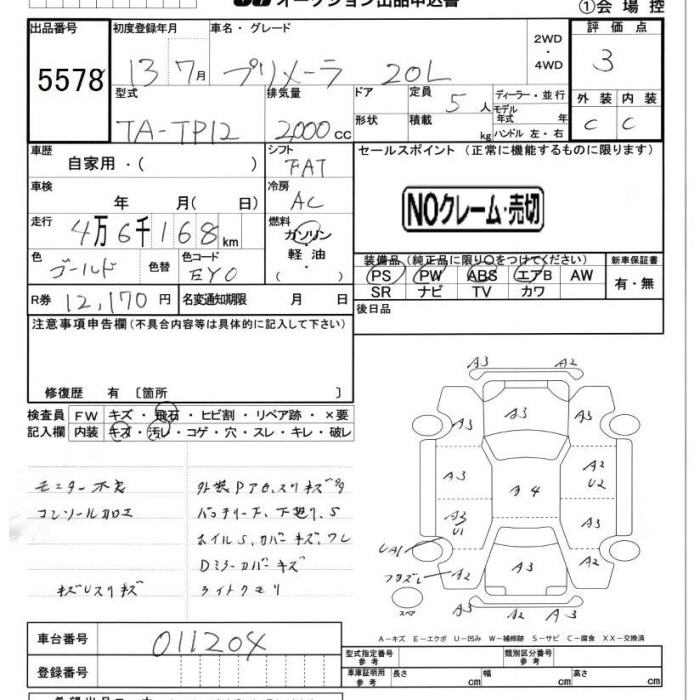 オークション出品申込書
①会場控
出品番号 初度登録年月 車名・グレード 2WD・4WD 評価点
5578 13 7月 プリメーラ 20L 3
型式 排気量 ドア 定員 5人 ディーラー・並行 外装 内装
TA-TP12 2000cc 形状 積載 kg モデル年式 年 ハンドル 左・右 C C
車歴 自家用・( ) シフト FAT セールスポイント (正常に機能するものに限ります)
車検 年 月( 日) 冷房 AC
NOクレーム・売切
走行 4万6千168km 燃料 ガソリン 軽油 ・ ( )
色 ゴールド 色替 色コード EY0
装備品(純正品に限り○をつけてください) 新車保証書
PS PW ABS エアB AW 有・無
SR ナビ TV カワ
R券 12,170円 名変通知期限 月 日
後日品
注意事項申告欄(不具合内容等は具体的に記入して下さい)
修復歴 有 〔箇所 〕
検査員 FW キズ・飛石・ヒビ割・リペア跡・×要
記入欄 内装 キズ・汚レ・コゲ・穴・スレ・キレ・破レ
モニター不良
コンソール加工
キズUスリキズ
バッテリー下、下廻り、S
ホイルS、カバーキズ、ワレ
Dミラーカバーキズ
ライトクモリ
A3 A2
A3
A3 A3
A3 A2 U2
A4
A3 U1 A3
UA1
フタズレ A2 A3 A2
A2 A3
A3
スペア
A-キズ E-エクボ U-凹み W-補修跡 S-サビ C-腐食 XX-交換済
車台番号 011204
登録番号
型式指定番号 参考 類別区分番号 参考
車庫証明用 参考 長さ cm 幅 cm 高さ cm